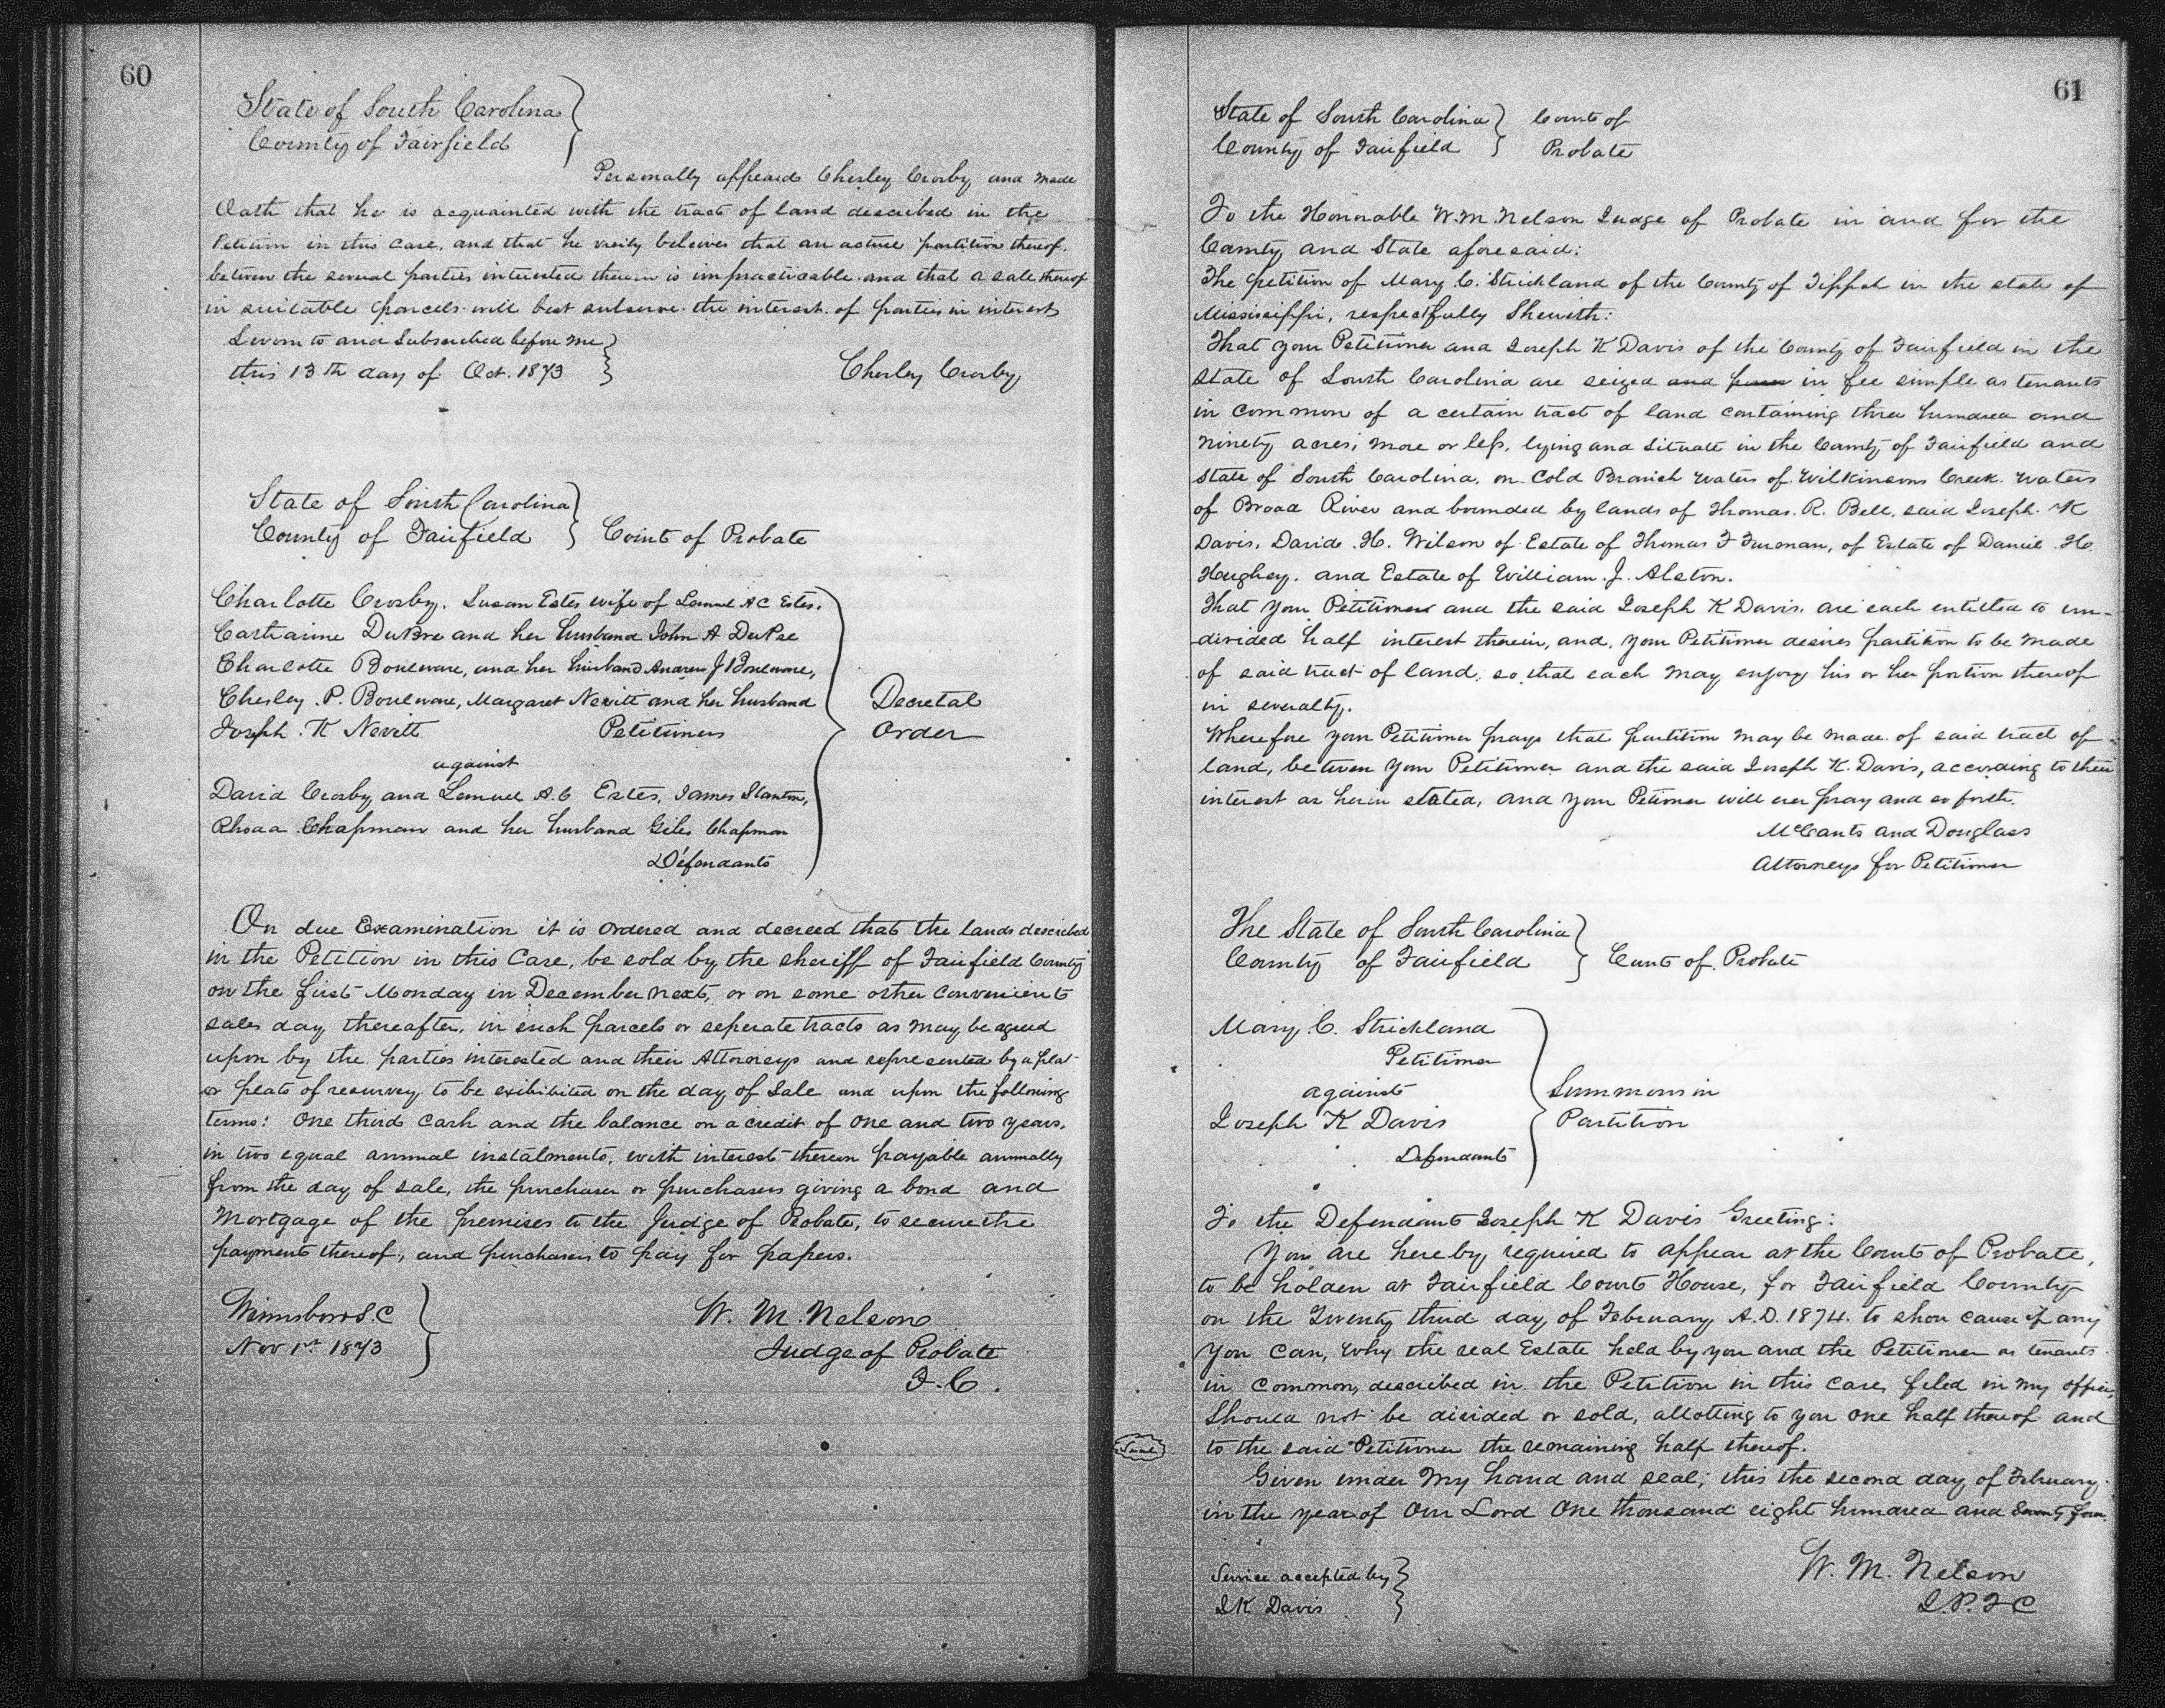 60
State of South Carolina
County of Fairfield
Personally appeard Chesley Crosby and made
Oath that he is acquainted with the tract of land described in the
Petition in this case, and that he verily beleives that an actual partition thereof
between the several parties interested therein is impracticable and that a sale thereof
in suitable parcels will best subserve the interest of parties in interest
Sworn to and Subscribed before me
this 13th day of Oct. 1873
Chesley Crosby
State of South Carolina
County of Fairfield
Court of Probate
Charlotte Crosby. Susan Estes wife of Lemuel A C Estes.
DuBre and her husband John A DuPre
Charlotte Bouleware, and her husband Andrew J Bouleware,
Chesley P. Bouleware, Margaret Nevitt and her husband
Joseph K Nevitt Petitioners
against
David Crosby and Lemuel A. C Estes, James Stanton,
Rhoda Chapman and her husband Giles Chapman
Defendants
Decretal
Order
On due Examination it is ordered and decreed that the lands described
in the Petition in this Case, be sold by the sheriff of Fairfield County
on the first Monday in December next, or on some other convenient
sales day thereafter, in such parcels or seperate tracts as may be agreed
upon by the parties interested and their Attorneys and represented by a plat
or plats of resurvey to be exhibited on the day of Sale and upon the following
terms: One third Cash and the balance on a credit of one and two years,
in two equal annual instalments, with interest thereon payable annually
from the day of sale, the purchaser or purchasers giving a bond and
Mortgage of the premises to the Judge of Probate, to secure the
payment thereof, and purchasers to pay for papers.
Winnsboro S.C
Nov 1st 1873
W. M. Nelson
Judge of Probate
F. C.
61
State of South Carolina
County of Fairfield
Court of
Probate
To the Honorable W. M. Nelson Judge of Probate in and for the
County and State aforesaid:
The petition of Mary C. Strickland of the County of Tippah in the state of
Mississippi, respectfully Sheweth:
That your Petitioner and Joseph K Davis of the County of Fairfield in the
state of South Carolina are seized and in fee simple as tenants
in common of a certain tract of land containing three hundred and
ninety acres, more or less, lying and situate in the County of Fairfield and
State of South Carolina, on Cold Branch waters of Wilkinsons Creek waters
of Broad River and bounded by lands of Thomas. R. Bell, said Joseph K
Davis, David H. Wilson of Estate of Thomas F Furman, of Estate of Daniel H.
Hughey. and Estate of William. J. Alston.
That your Petitioner and the said Joseph K Davis, are each entitled to un-
divided half interest therein, and, your Petitioner desires partition to be made
of said tract of land, so that each may enjoy his or her portion thereof
in severalty.
Wherefore your Petitioner prays that partition may be made of said tract of
land, between your Petitioner and the said Joseph K. Davis, according to their
interest as herein stated, and your Petitioner will ever pray and so forth.
McCants and Douglass
Attorneys for Petitioner
The State of South Carolina
County of Fairfield
Court of Probate
Mary C. Strickland
Petitioner
against
Joseph K Davis
Defendant
Summons in
Partition
To the Defendant Joseph K Davis Greeting:
You are hereby required to appear at the Court of Probate,
to be holden at Fairfield Court House, for Fairfield County
on the Twenty third day of February A.D. 1874. to show cause if any
you can, why the real Estate held by you and the Petitioner as tenants
in common, described in the Petition in this case, filed in my office,
Should not be divided or sold, allotting to you one half thereof and
to the said Petitioner the remaining half thereof.
Given under my hand and seal, this the second day of February
in the year of Our Lord One thousand eight hundred and Seventy four.
W. M. Nelson
J. P. F C
Service accepted by
J K Davis